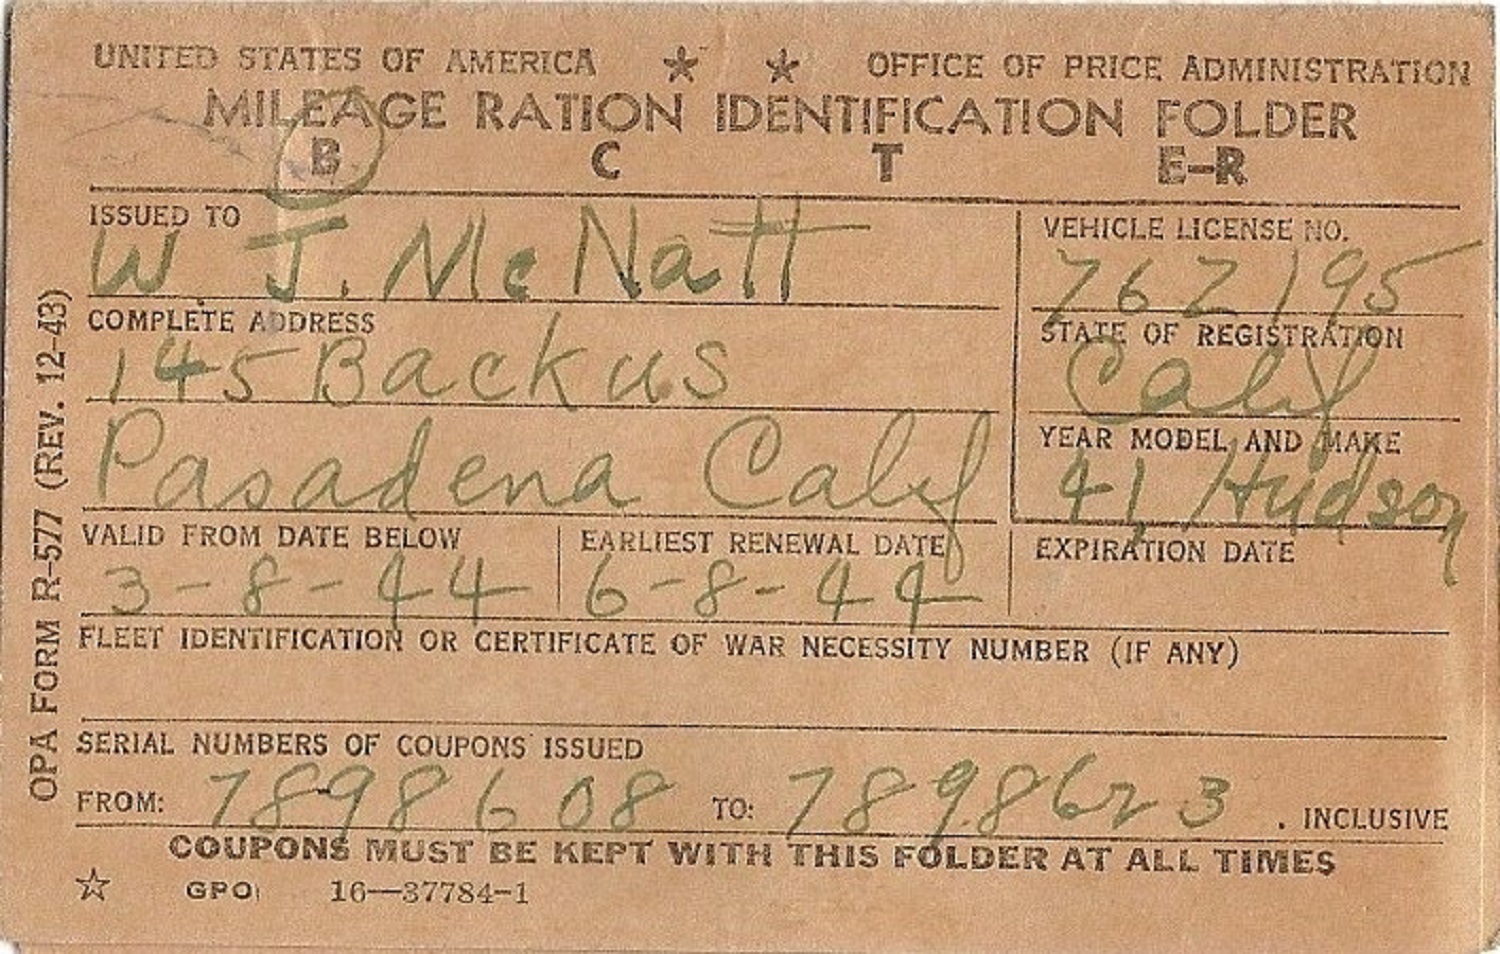 UNITED STATES OF AMERICA ★ ★ OFFICE OF PRICE ADMINISTRATION
MILEAGE RATION IDENTIFICATION FOLDER
B C T E-R
ISSUED TO
W J. McNatt
VEHICLE LICENSE NO.
762195
COMPLETE ADDRESS
145 Backus
STATE OF REGISTRATION
Calif
Pasadena Calif
YEAR MODEL AND MAKE
41, Hudson
VALID FROM DATE BELOW
3-8-44
EARLIEST RENEWAL DATE
6-8-44
EXPIRATION DATE
FLEET IDENTIFICATION OR CERTIFICATE OF WAR NECESSITY NUMBER (IF ANY)
SERIAL NUMBERS OF COUPONS ISSUED
FROM: 7898608 TO: 7898623 . INCLUSIVE
COUPONS MUST BE KEPT WITH THIS FOLDER AT ALL TIMES
☆ GPO 16—37784-1
OPA FORM R-577 (REV. 12-43)